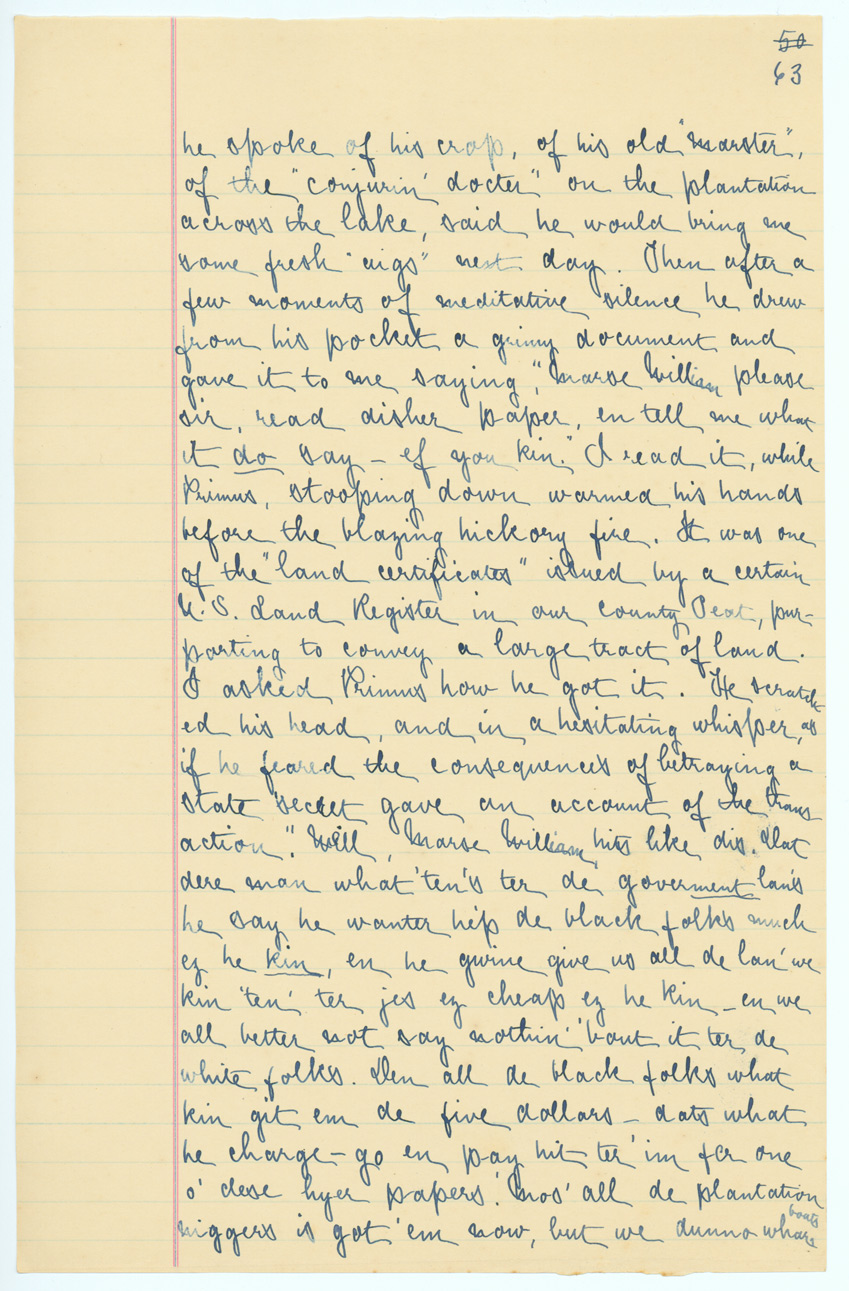 50
63
he spoke of his crop, of his old "marster",
of the "conjurin' docter" on the plantation
across the lake, said he would bring me
some fresh "aigs" next day. Then after a
few moments of meditative silence he drew
from his pocket a grimy document and
gave it to me saying, "Marse William please
sir, read disher paper, en tell me what
it do say – ef you kin." I read it, while
Primus, stooping down warmed his hands
before the blazing hickory fire. It was one
of the "land certificates" issued by a certain
U.S. Land Register in our county Seat, pur-
porting to convey a large tract of land.
I asked Primus how he got it. He scratch-
ed his head, and in a hesitating whisper, as
if he feared the consequences of betraying a
state secret gave an account of the trans-
action". Well, Marse William, hits like dis. Dat
dere man what 'ten's ter de government lan's
he say he wanter he'p de black folks much
ez he kin, en he gwine give us all de lan' we
kin 'ten' ter jes ez cheap ez he kin – en we
all better not say nothin' 'bout it ter de
white folks. Den all de black folks what
kin git em de five dollars – dats what
he charge – go en pay hit ter 'im fer one
o' dese hyer papers. Mos' all de plantation
niggers is got 'em now, but we dunno whar
bouts